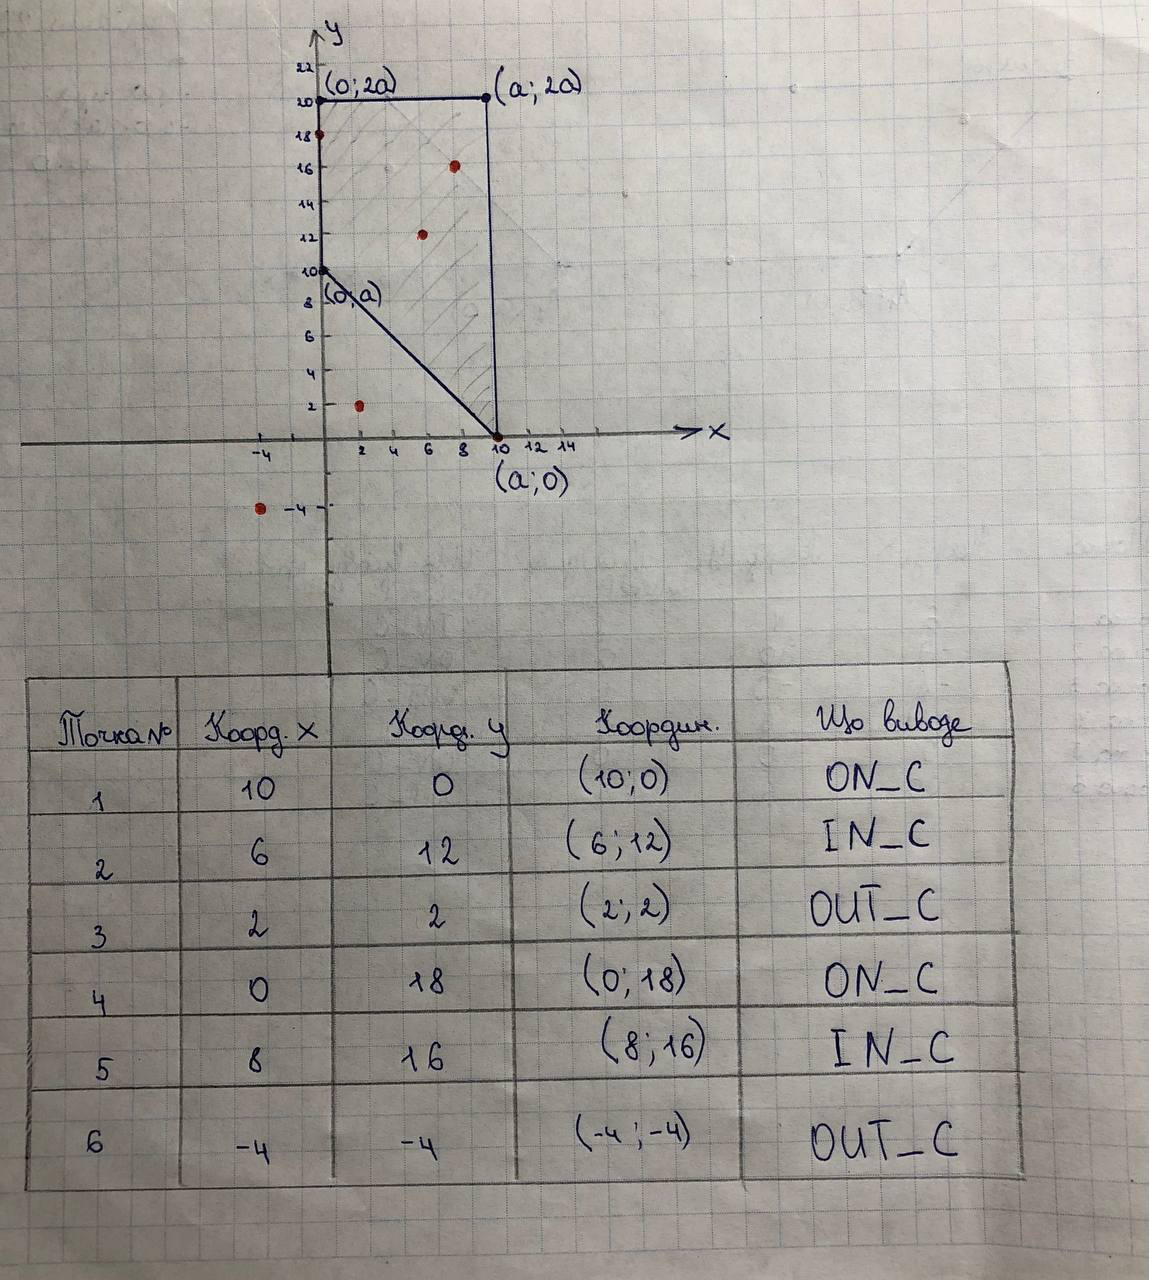 y
22
(0; 2a) (a; 2a)
20
18
16
14
12
10
(0; a)
8
6
4
2
x
-4 2 4 6 8 10 12 14
(a; 0)
-4
Точка № Коорд. x Коорд. y Координ. Що виводе
1 10 0 (10; 0) ON_C
2 6 12 (6; 12) IN_C
3 2 2 (2; 2) OUT_C
4 0 18 (0; 18) ON_C
5 8 16 (8; 16) IN_C
6 -4 -4 (-4; -4) OUT_C